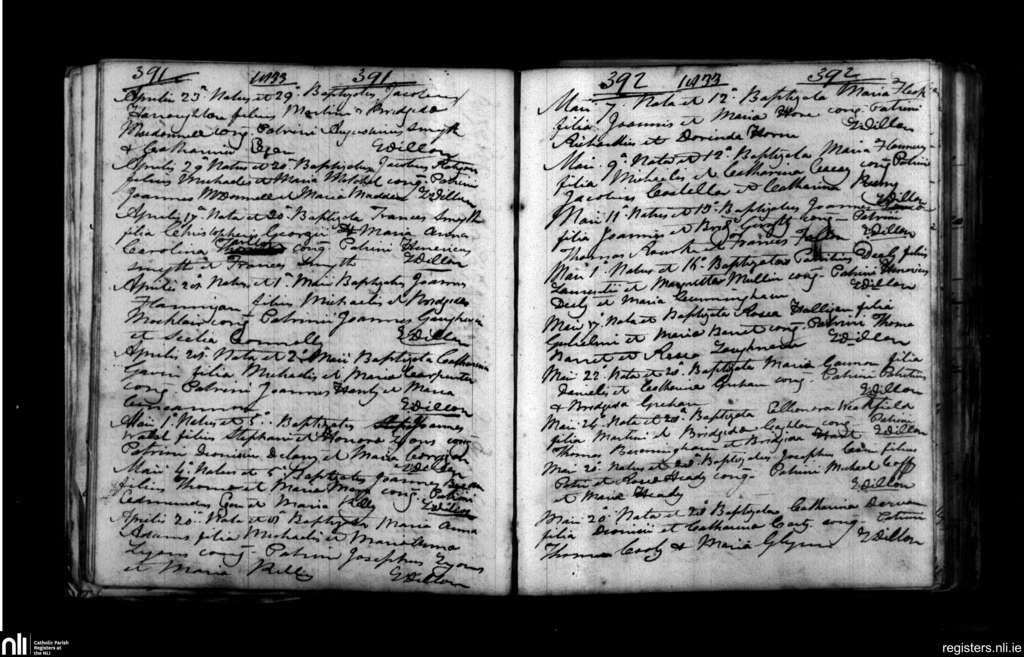 391 1833 391
Aprilis 23a Natus et 29a Baptizatus Jacobus
Harroughton filius Martini & Bridgida
Macdonnell conj- Patrini Augustinus Smyth
& Catharina Egan EDillon
Aprilis 29a Natus et Baptizatus
filius Michaelis et Maria Mitchel conj- Patrini
Joannes McDonnell et Maria Madden EDillon
Aprilis 17a Nata et 20a Baptizata Frances Smyth
filia Christopheri Georgii & Maria Anna
Carolina conj- Patrini Henericus
Smyth et Frances Smyth EDillon
Aprilis Natus et 1a Maii Baptizatus Joannes
Flannigan filius Michaelis et Bridgida
conj- Patrini Joannes
et Secilia Connelly EDillon
Aprilis Nata et 2a Maii Baptizata Catharina
Gavin filia Michaelis et Maria Carpenter
conj- Patrini Joannes et Maria
EDillon
Maii 1a Natus et 5a Baptizatus Joannes
Walsh filius Stephani et Honora Lyons conj-
Patrini Dionisius Delany et Maria Corcoran
EDillon
Maii 4a Natus et 5a Baptizatus Joannes
filius Thoma et Maria conj- Patrini
Edmundus et Maria Kelly EDillon
Aprilis 20a Nata et Baptizata Maria Anna
Adams filia Michaelis et Maria Anna
Lyons conj- Patrini Josephus Lyons
et Maria Kelly EDillon
392 1833 392
Maii 7a Nata et 12a Baptizata Maria
filia Joannis et Maria Hore conj- Patrini
Richardus et Dorinda Horne EDillon
Maii 9a Nata et 12a Baptizata Maria Flannery
filia Michaelis et Catharina Casey conj- Patrini
Jacobus Costello et Catharina EDillon
Maii 11a Natus et 15a Baptizatus Joannes
filia Joannis et conj- Patrini
Thomas & Frances Fallon EDillon
Maii 1a Natus et 16a Baptizatus Patritius Deely filius
Laurentii et Margaretta Mullin conj- Patrini Henricus
Deely et Maria Cunningham EDillon
Maii 17a Nata et Baptizata Rosea Halligan filia
Gulielmi et Maria Barret conj- Patrini Thoma
Barret et Rosea Loughnane EDillon
Maii 22a Nata et Baptizata Maria filia
Danielis et Catharina Greham conj- Patrini Patritius
& Bridgida Greham EDillon
Maii 24a Nata et Baptizata Ellenora Wakefield
filia Martini et Bridgida conj- Patrini
Thomas Bermingham et Bridgida EDillon
Maii 20a Natus et Baptizatus Josephus filius
Petri et Rosea Heady conj- Patrini Michael Goff
et Maria Heady EDillon
Maii 20a Nata et Baptizata Catharina
filia Dionisii et Catharina Carty conj- Patrini
Thomas Cooly & Maria Glynn EDillon
nli Catholic Parish
Registers at
the NLI
registers.nli.ie